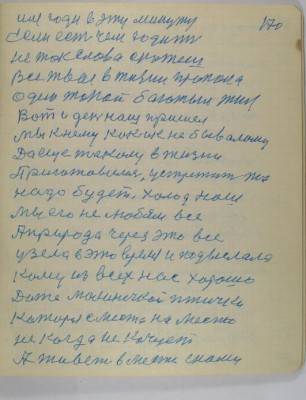 или годи в эту минуту 170
Если есть чем годить
не ток слова скужеш
Все твае в жизни пропока
один такой багатый жил
Вот и ден наш пришел
мы кнему как как не бывалому
Даеще такому в жизни
Приготовилис, устретит та
надо будет, холод наш
мы его не любим все
Априрода через это все
узела в это время и подослала
Кому из всех нас хорошо
Даже малиничкой птички
Каторя с места на место
не когда не качует
А живет в месте снами